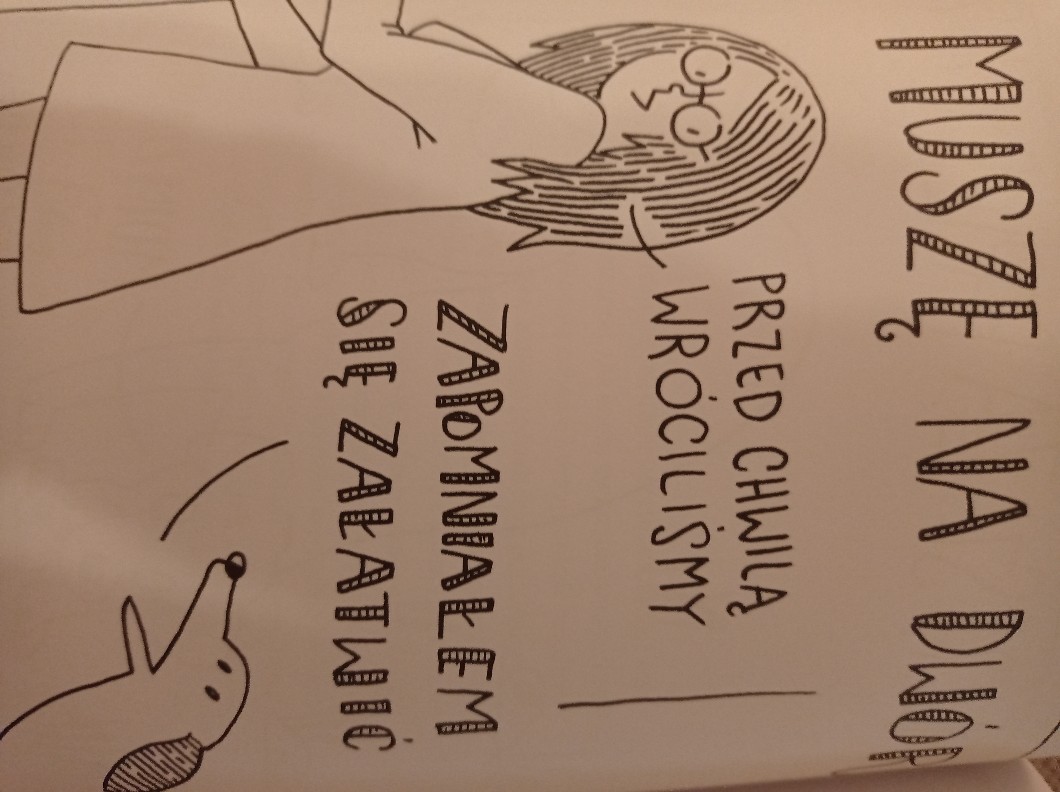 MUSZĘ NA DWÓR
PRZED CHWILĄ
WRÓCILIŚMY
ZAPOMNIAŁEM
SIĘ ZAŁATWIĆ